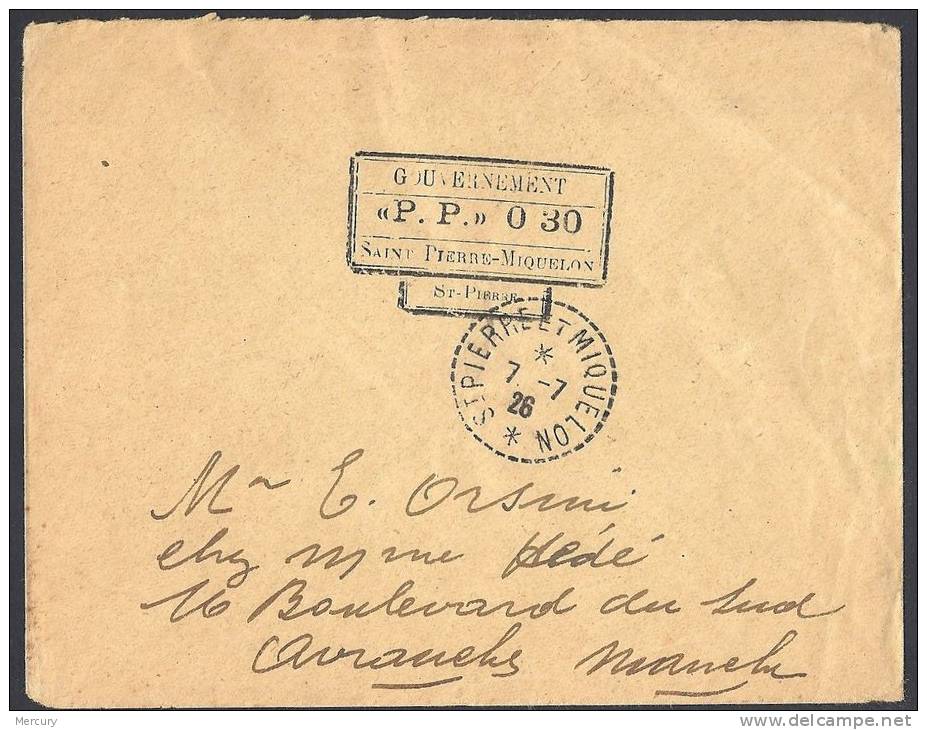 GOUVERNEMENT
«P. P.» 0 30
SAINT PIERRE-MIQUELON
ST-PIERRE
ST PIERRE ET MIQUELON
*
7 -7
26
*
Mr E. Orsini
chez Mme Hédé
16 Boulevard du Sud
Avranches Manche
Mercury
www.delcampe.net